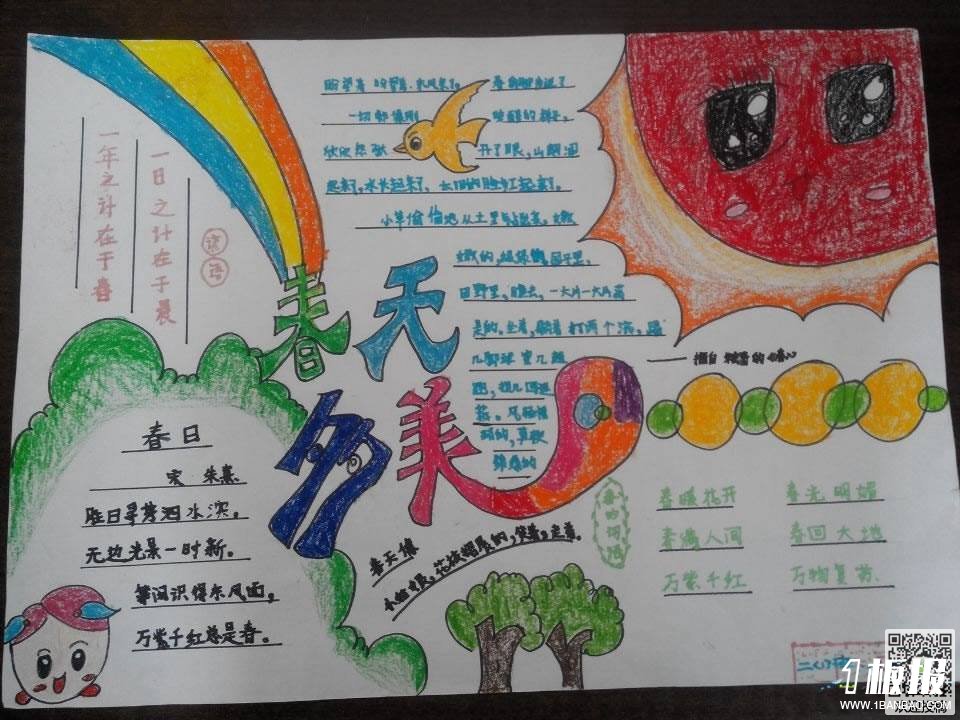 一年之计在于春
一日之计在于晨
谚语
春天多美
盼望着 盼望着.东风来了。 春
一切都像刚 睡醒的样子。
欣欣然张 开了眼,山朗润
起来了,水长起来了、太阳的脸红起来了。
小草偷偷地从土里钻出来。嫩
嫩的,绿绿的,园子里。
田野里,瞧去,一大片一大片满
是的.坐着,躺着 打两个滚。踢
几脚球 赛几趟
跑,捉几回迷
藏。风轻悄
悄的,草软
绵绵的
摘自 朱自清的《春》
春日
宋 朱熹
胜日寻芳泗水滨。
无边光景一时新。
等闲识得东风面,
万紫千红总是春。
春天像
小姑娘,花枝招展的,笑着,走着。
春的词语
春暖花开 春光明媚
春满人间 春回大地
万紫千红 万物复苏
1板报
WWW.1BANBAO.COM